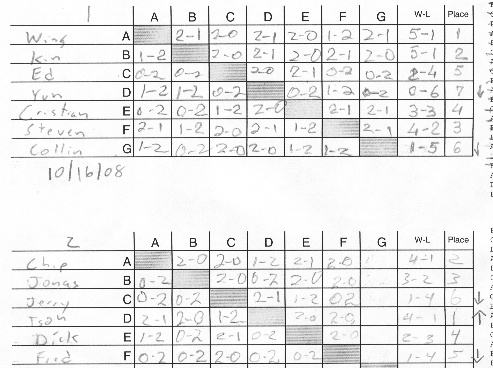 1 A B C D E F G W-L Place
Wing A 2-1 2-0 2-1 2-0 1-2 2-1 5-1 1
Kin B 1-2 2-0 2-1 2-0 2-1 2-0 5-1 2
Ed C 0-2 0-2 2-0 2-1 0-2 0-2 2-4 5
Yun D 1-2 1-2 0-2 0-2 1-2 0-2 0-6 7 ↓
Cristian E 0-2 0-2 1-2 2-0 2-1 2-1 3-3 4
Steven F 2-1 1-2 2-0 2-1 1-2 2-1 4-2 3
Collin G 1-2 0-2 2-0 2-0 1-2 1-2 1-5 6 ↓
10/16/08
2 A B C D E F G W-L Place
Chip A 2-0 2-0 1-2 2-1 2-0 4-1 2
Jonas B 0-2 2-0 0-2 2-0 2-0 3-2 3
Jerry C 0-2 0-2 2-1 1-2 0-2 1-4 6 ↓
D 2-1 2-0 1-2 2-0 2-0 4-1 1 ↑
Dick E 1-2 0-2 2-1 0-2 2-0 2-3 4
Fred F 0-2 0-2 2-0 0-2 0-2 1-4 5 ↓